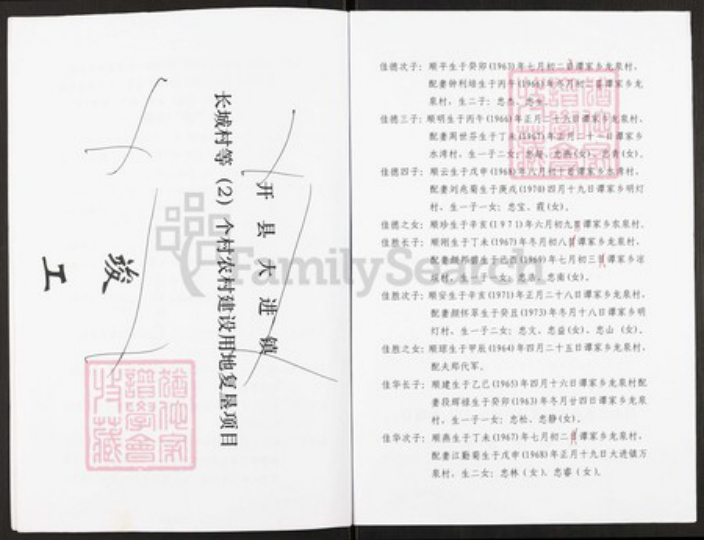 开县大进镇
长城村等(2)个村农村建设用地复垦项目
竣
工
FamilySearch
佳德次子：顺平生于癸卯(1963)年七月初二日谭家乡龙泉村。
配妻钟利培生于丙午(1966)年冬月初二日谭家乡龙
泉村，生二子：忠杰、忠
佳德三子：顺明生于丙午(1966)年正月二十六日谭家乡龙泉村。
配妻周世芬生于丁未(1967)年正月二十一日谭家乡
水湾村，生一子二女：忠、忠燕(女)、忠青(女)。
佳德四子：顺云生于戊申(1968)年六月初十日谭家乡水湾村，
配妻刘兆菊生于庚戌(1970)四月十九日谭家乡明灯
村，生一子一女：忠宝、霞(女)。
佳德之女：顺珍生于辛亥(1971)年六月初九日谭家乡农泉村。
佳胜长子：顺刚生于丁未(1967)年冬月初八日谭家乡龙泉村。
配妻颜邦媚生于己酉(1969)年七月初三日谭家乡凉
垭村，生一子一女：忠浩、忠南(女)。
佳胜次子：顺安生于辛亥(1971)年正月二十八日谭家乡龙泉村，
配妻颜怀翠生于癸丑(1973)年冬月十八日谭家乡明
灯村，生一子二女：忠文、忠益(女)、忠山 (女)。
佳胜之女：顺琼生于甲辰(1964)年四月二十五日谭家乡龙泉村，
配夫郑代军。
佳华长子：顺建生于乙巳(1965)年四月十六日谭家乡龙泉村配
妻段辉禄生于癸卯(1963)年冬月廿四日谭家乡龙泉
村，生一子一女：忠松、忠静(女)。
佳华次子：顺燕生于丁未(1967)年七月初二日谭家乡龙泉村，
配妻江勤菊生于戊申(1968)年正月十九日大进镇万
泉村，生二女：忠林 (女)、忠睿 (女)。